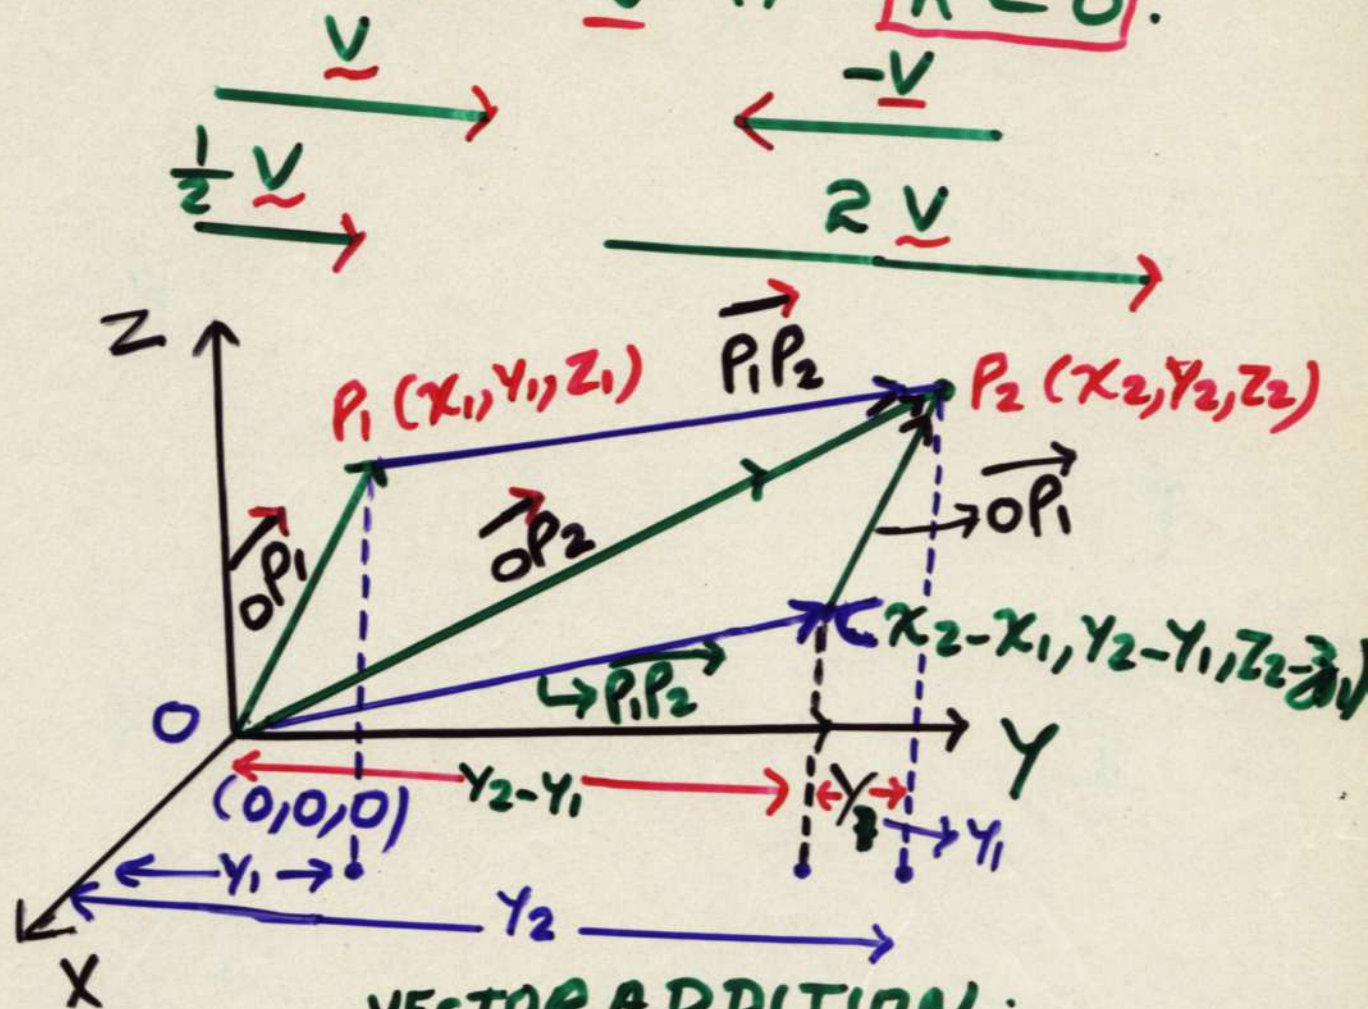 V
-V
1/2 V
2 V
Z
P₁P₂
P₁ (X₁, Y₁, Z₁)
P₂ (X₂, Y₂, Z₂)
OP₁
OP₂
OP₁
(X₂-X₁, Y₂-Y₁, Z₂-Z₁)
P₁P₂
O
Y
(0,0,0)
Y₂-Y₁
Y₁
Y₁
Y₂
X
VECTOR ADDITION: